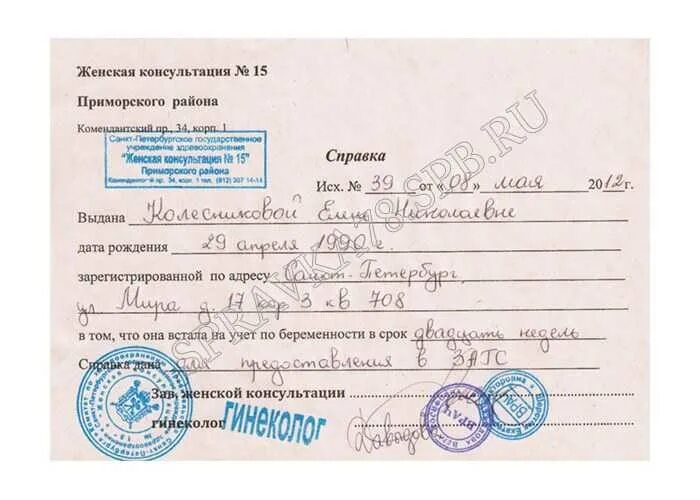 Женская консультация № 15
Приморского района
Комендантский пр., 34, корп. 1
Санкт-Петербургское государственное
учреждение здравоохранения
"Женская консультация № 15"
Приморского района
Комендантский пр. 34, корп. 1 тел. (812) 307 14-14
Справка
Исх. № 39 от «08» мая 2012 г.
Выдана Колесниковой Елене Николаевне
дата рождения 29 апреля 1990 г.
зарегистрированной по адресу Санкт-Петербург
ул Мира д. 17 кор 3 кв 708
в том, что она встала на учет по беременности в срок двадцать недель
Справка дана для предоставления в ЗАГС
Зав. женской консультации
гинеколог
ГИНЕКОЛОГ
ВРАЧ
ВРАЧ
SPRAVKA78.SPB.RU